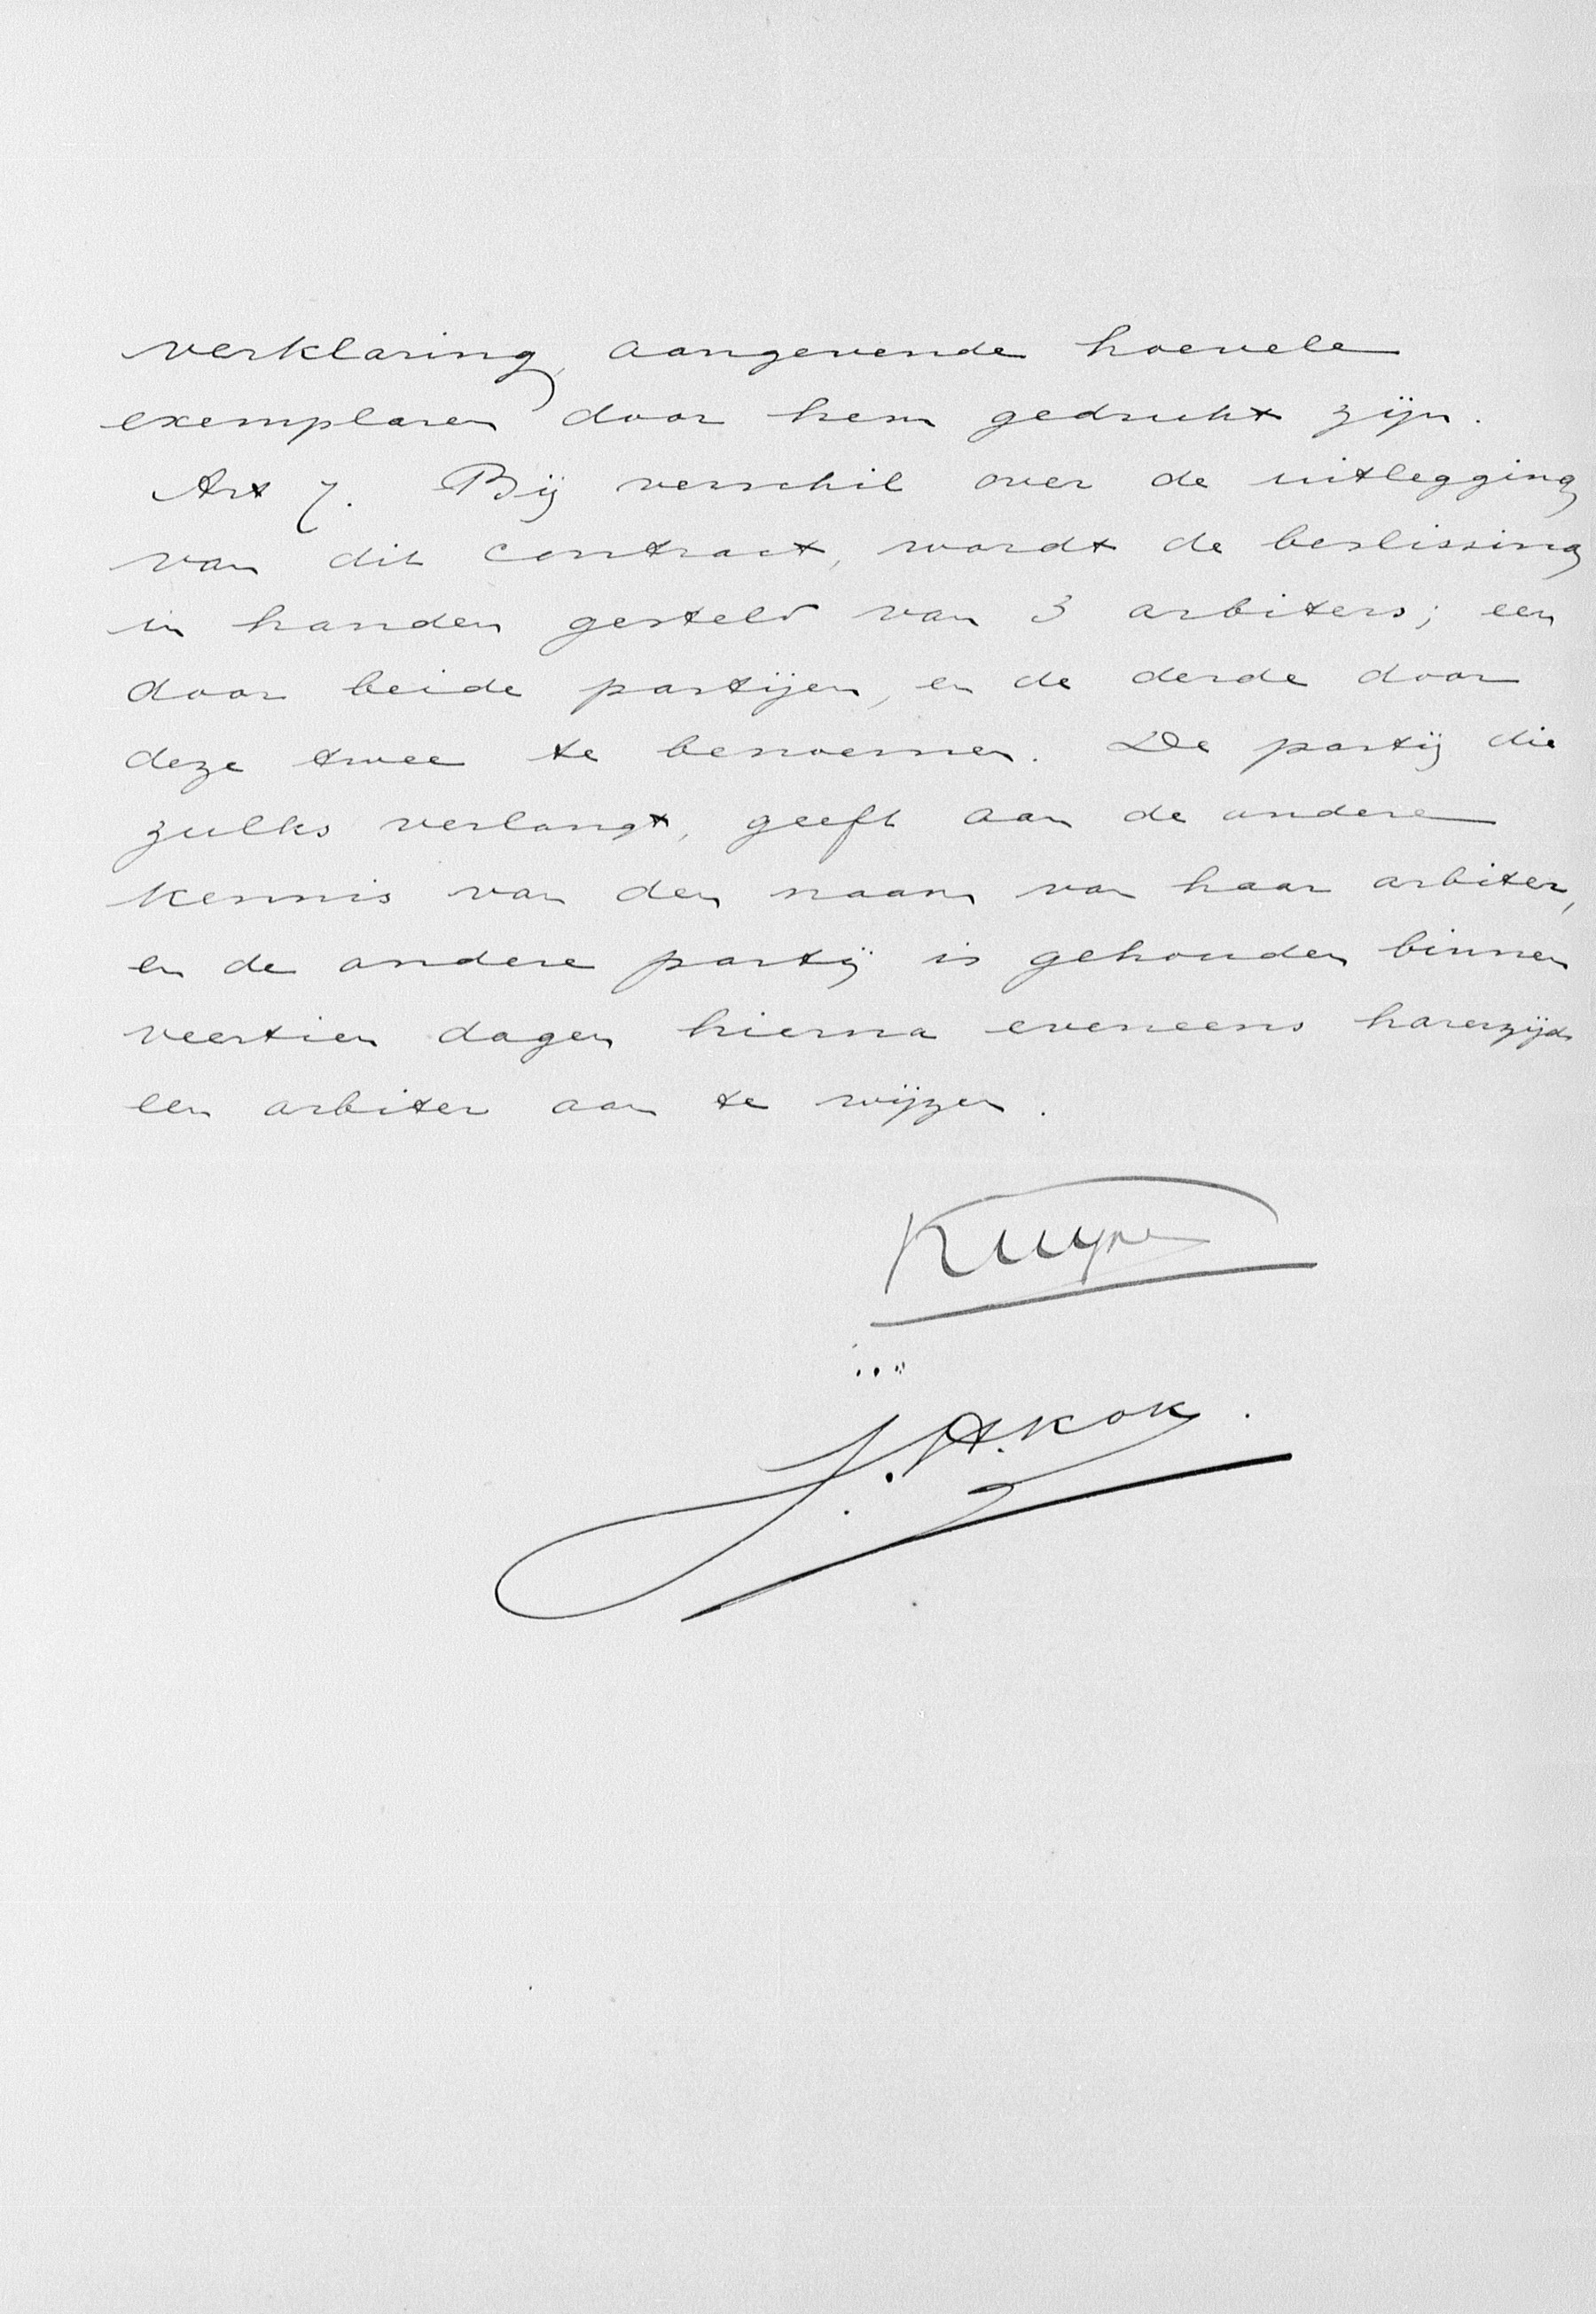 verklaring, aangevende hoevele
exemplaren door hem gedrukt zijn.
Art 7. Bij verschil over de uitlegging
van dit contract, wordt de beslissing
in handen gesteld van 3 arbiters; een
door beide partijen, en de derde door
deze twee te benoemen. De partij die
zulks verlangt, geeft aan de andere
kennis van den naam van haar arbiter,
en de andere partij is gehouden binnen
veertien dagen hierna eveneens harerzijds
een arbiter aan te wijzen.
Kuyper
J. H. Kok.